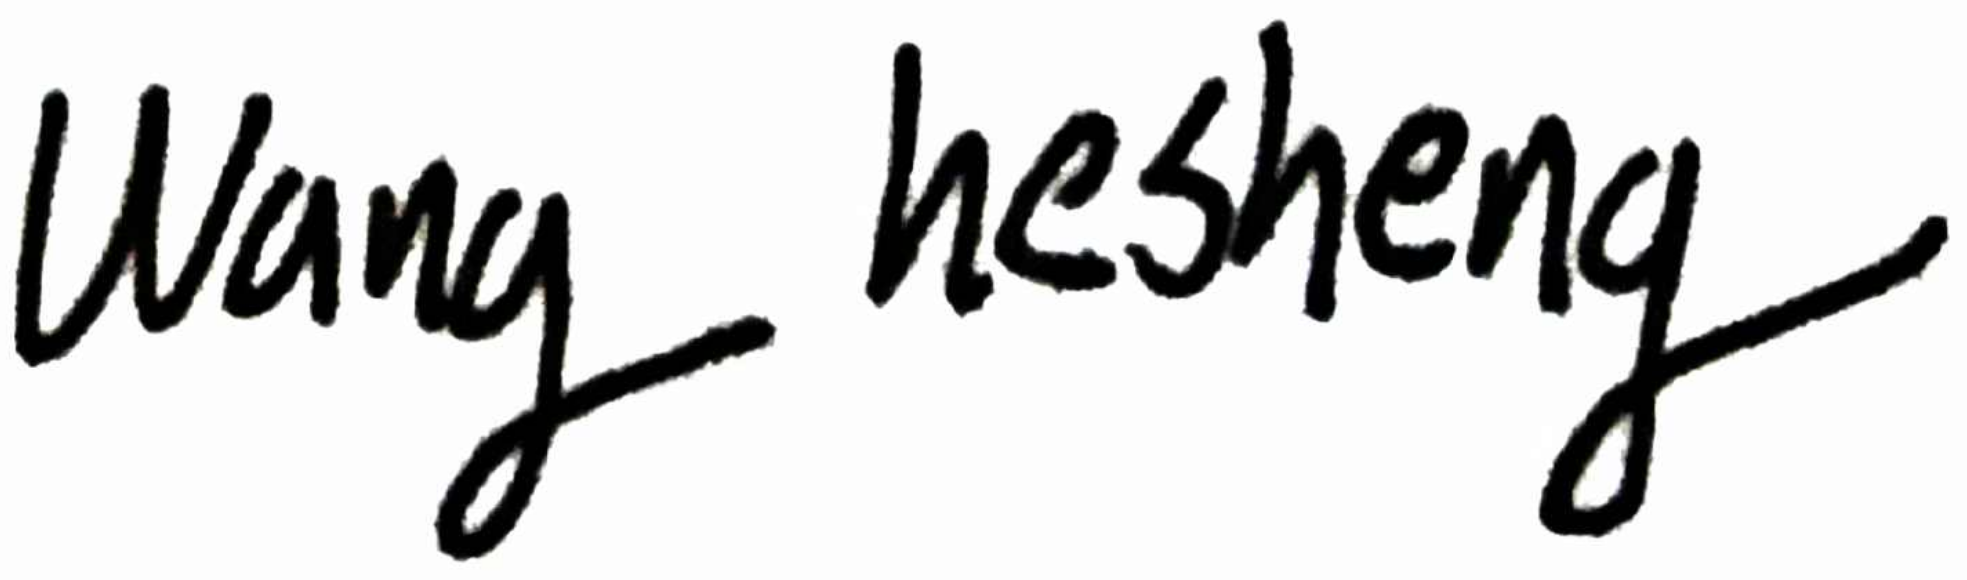 Wang hesheng